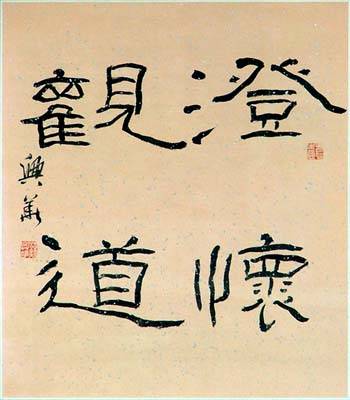 澄懷
觀道
興